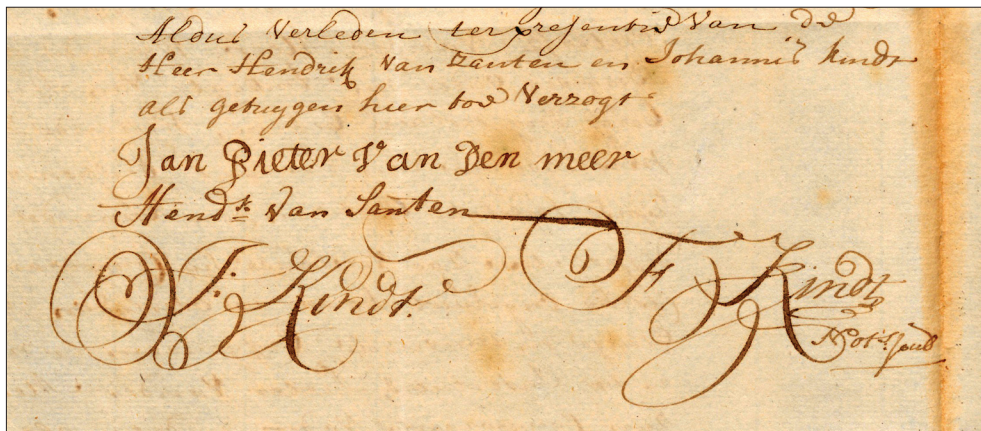 Aldus Verleden ter presentie Van de
Heer Hendrik Van Zanten en Johannis Kindt
als getuygen hier toe Verzogt
Jan Pieter Van Den meer
Hendk Van Santen
J: Kindt. F Kindt
Nots. Publ